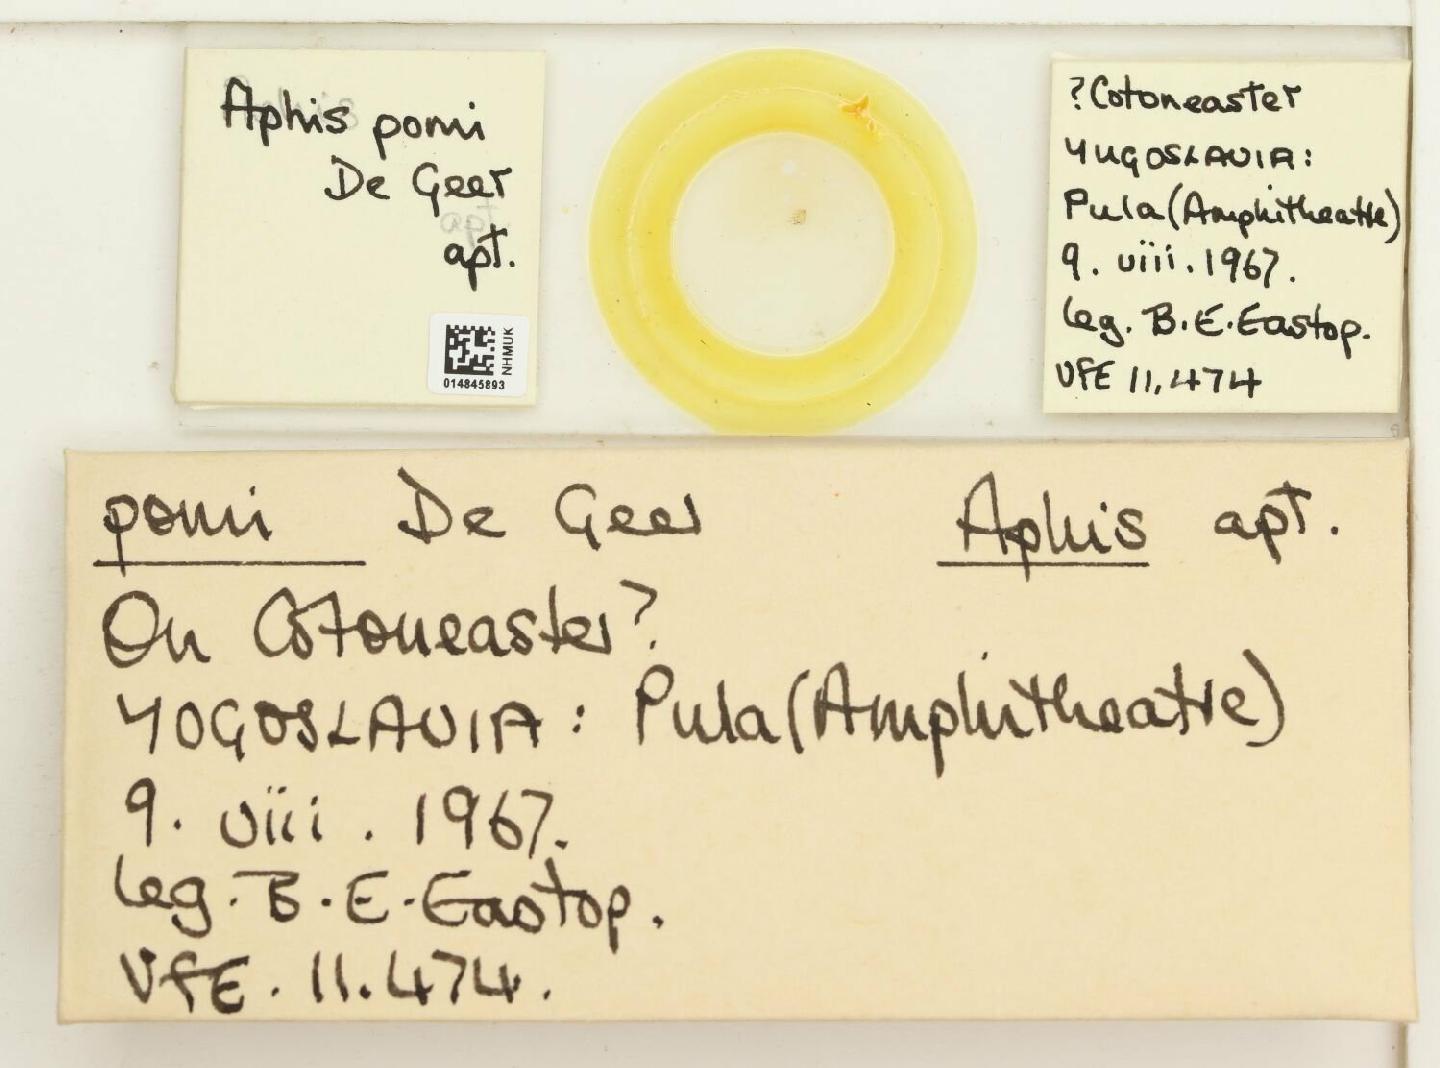 Aphis pomi
De Geer
apt.
NHMUK
014845893
?Cotoneaster
YUGOSLAVIA:
Pula (Amphitheatre)
9. viii. 1967.
leg. B.E. Eastop.
VFE 11,474
pomi De Geer Aphis apt.
On Cotoneaster?
YOGOSLAVIA: Pula (Amphitheatre)
9. viii. 1967.
leg. B.E. Eastop.
VFE. 11.474.